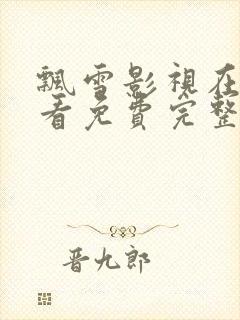 飄雪影視在
看免費完整
晋九郎